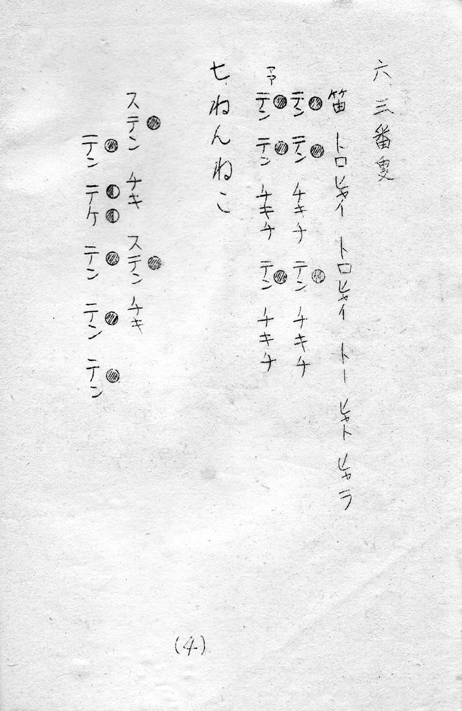 六、三番叟
笛 トロヒャイ トロヒャイ トーヒャト ヒャラ
テン テン チキチ テン チキチ
テン テン チキチ テン チキチ
七、ねんねこ
ステン チキ ステン チキ
テン テケ テン テン テン
(4)